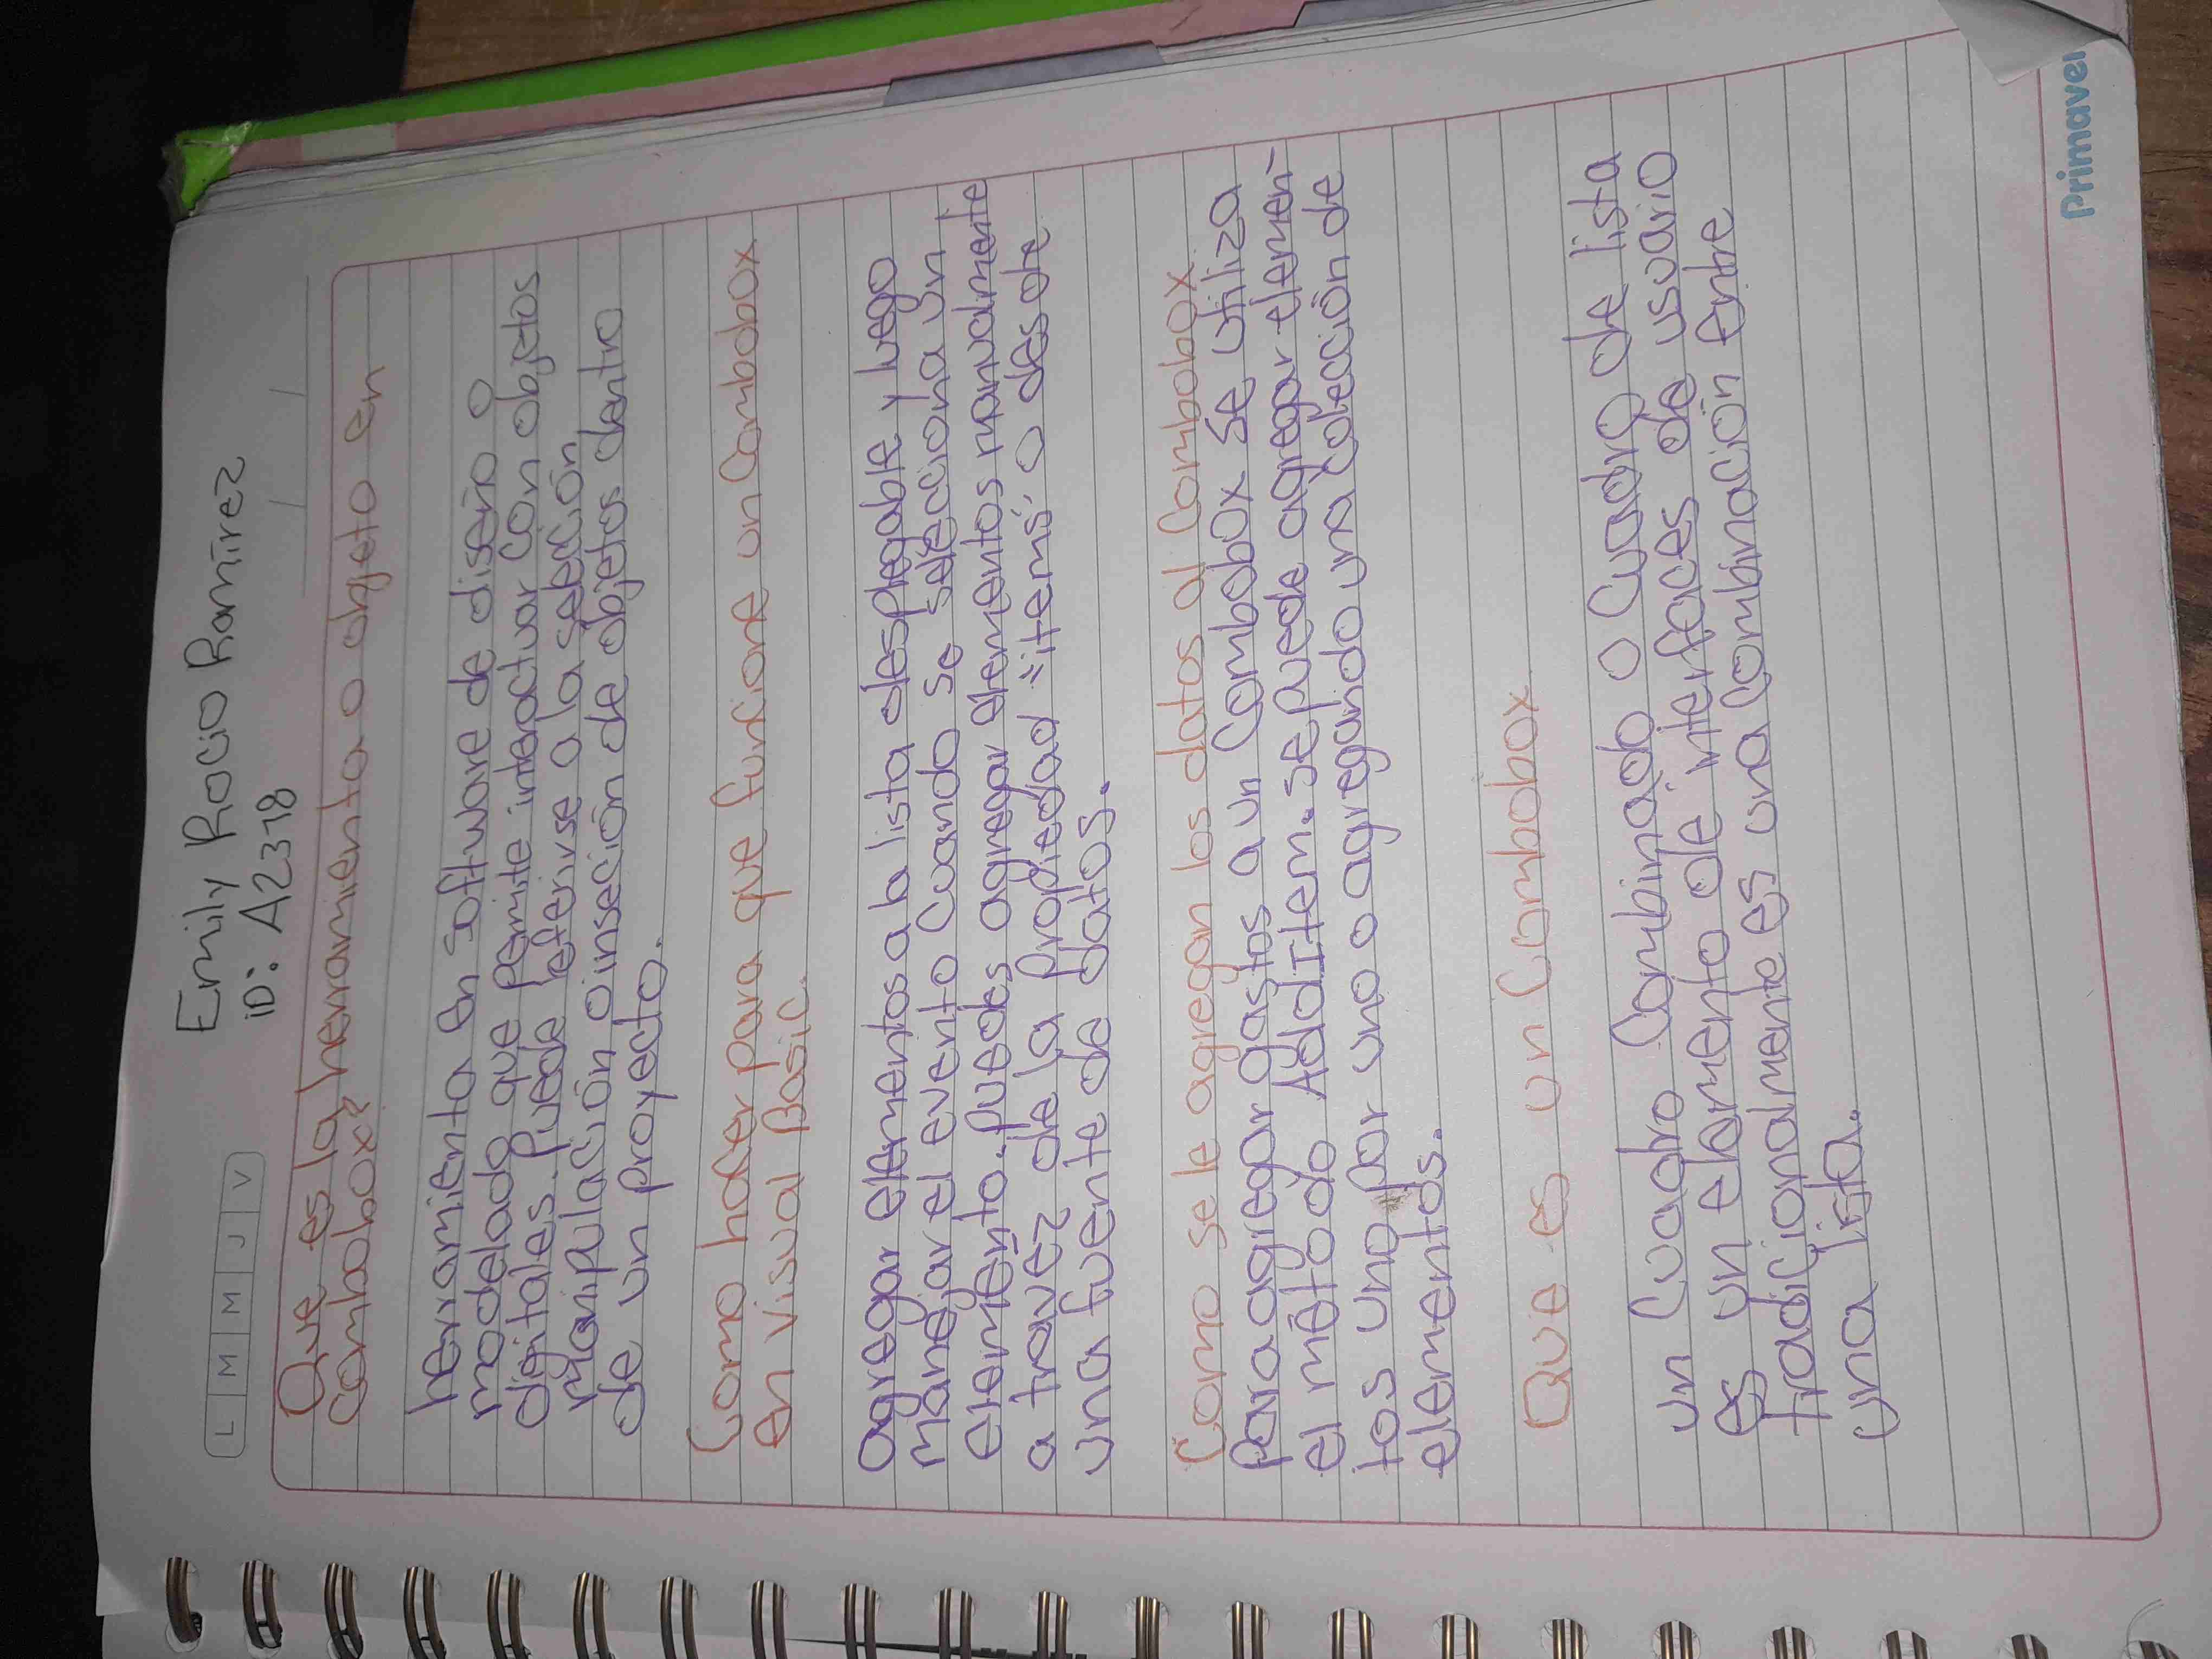 Emily Rocio Ramírez
ID: A2378
L M M J V
Que es la herramienta o objeto en
combobox?
herramienta en software de diseño o
modelado que permite interactuar con objetos
digitales. Puede referirse a la seleción,
manipulación o inseción de objetos dentro
de un proyecto.
Como hacer para que funcione un Combobox
en Visual Basic.
Agregar elementos a la lista desplegable y luego
manejar el evento cuando se selecciona un
elemento. puedes agregar elementos manualmente
a travez de la propiedad "items" o desde
una fuente de datos.
Como se le agregan los datos al Combobox.
Para agregar gastos a un Combobox se utiliza
el método AddItem. se puede agregar elemen-
tos uno por uno o agregando una colección de
elementos.
Que es un Combobox.
un Cuadro Combinado o Cuadro de lista
es un elemento de interfaces de usuario
tradicionalmente es una combinación Entre
una lista.
Primavera